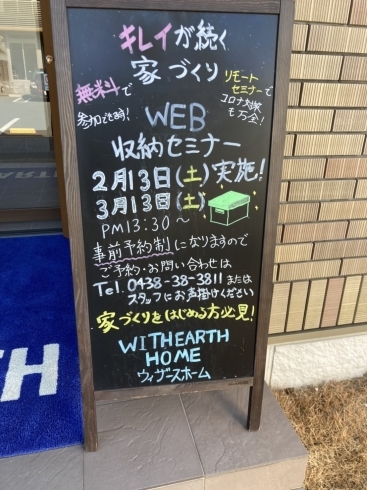 キレイが続く
家づくり
無料で
参加できます!
リモート
セミナーで
コロナ対策
も万全!
WEB
収納セミナー
2月13日(土)実施!
3月13日(土)
PM13:30〜
事前予約制になりますので
ご予約・お問い合わせは
Tel. 0438-38-3811または
スタッフにお声掛けください
家づくりをはじめる方必見!
WITHEARTH
HOME
ウィザースホーム
RTH